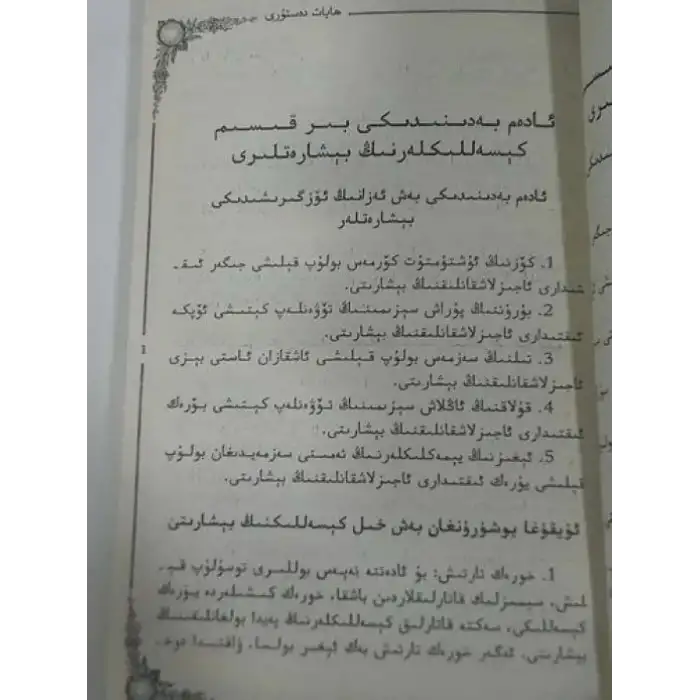 ھايات دەستۇرى
ئادەم بەدىنىدىكى بىر قىسىم
كېسەللىكلەرنىڭ بېشارەتلىرى
ئادەم بەدىنىدىكى بەش ئەزانىڭ ئۆزگىرىشىدىكى
بېشارەتلەر
1. كۆزنىڭ ئۇشتۇمتۇت كۆرمەس بولۇپ قېلىشى جىگەر ئىق-
تىدارى ئاجىزلاشقانلىقنىڭ بېشارىتى.
2. بۇرۇننىڭ پۇراش سېزىمىنىڭ تۆۋەنلەپ كېتىشى ئۆپكە
ئىقتىدارى ئاجىزلاشقانلىقنىڭ بېشارىتى.
3. تىلنىڭ سەزمەس بولۇپ قېلىشى ئاشقازان ئاستى بېزى
ئاجىزلاشقانلىقنىڭ بېشارىتى.
4. قۇلاقنىڭ ئاڭلاش سېزىمىنىڭ تۆۋەنلەپ كېتىشى بۆرەك
ئىقتىدارى ئاجىزلاشقانلىقنىڭ بېشارىتى.
5. ئېغىزنىڭ يېمەكلىكلەرنىڭ تەمىنى سەزمەيدىغان بولۇپ
قېلىشى يۈرەك ئىقتىدارى ئاجىزلاشقانلىقنىڭ بېشارىتى.
ئۇيقۇغا يوشۇرۇنغان بەش خىل كېسەللىكنىڭ بېشارىتى
1. خورەك تارتىش: بۇ ئادەتتە نەپەس يوللىرى توسۇلۇپ قې-
لىش، سېمىزلىك قاتارلىقلاردىن باشقا، خورەك كىشىلەردە يۈرەك
كېسەللىكى، سەكتە قاتارلىق كېسەللىكلەرنىڭ پەيدا بولغانلىقىنىڭ
بېشارىتى. ئەگەر خورەك تارتىش بەك ئېغىر بولسا، ۋاقتىدا دوخ-
1